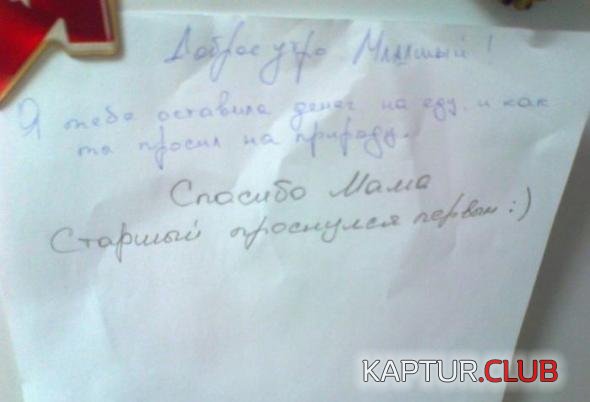 Доброе утро Младший!
Я тебе оставила денег на еду, и как
ты просил на природу.
Спасибо Мама
Старший проснулся первым :)
KAPTUR.CLUB